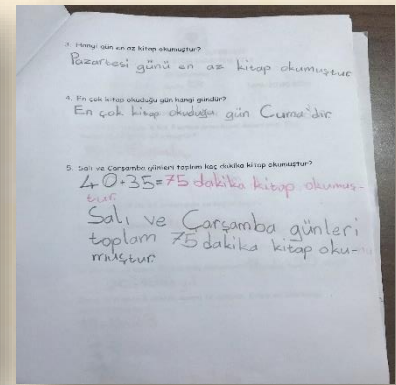 3. Hangi gün en az kitap okumuştur?
Pazartesi günü en az kitap okumuştur
4. En çok kitap okuduğu gün hangi gündür?
En çok kitap okuduğu gün Cuma'dır
5. Salı ve Çarşamba günleri toplam kaç dakika kitap okumuştur?
40+35=75 dakika kitap okumuş-
tur
Salı ve Çarşamba günleri
toplam 75 dakika kitap oku-
muştur